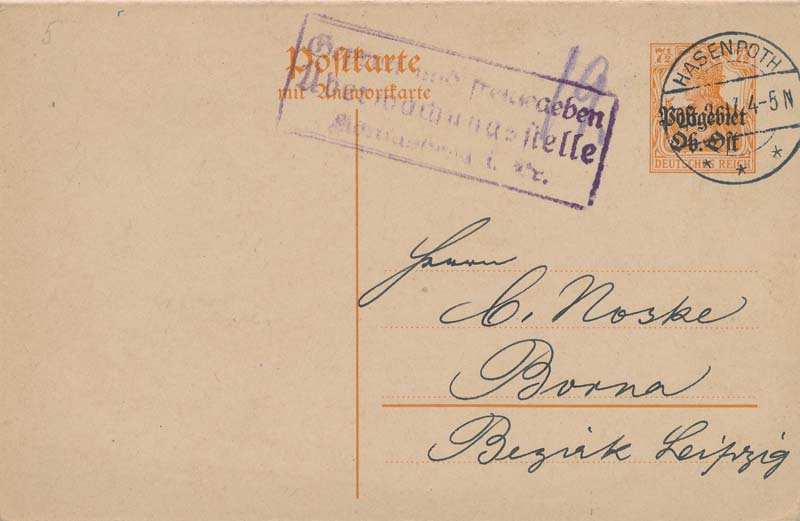 5
Postkarte
mit Antwortkarte
und freigegeben
Überwachungsstelle
i. Pr.
7½
HASENPOTH
4-5 N
Postgebiet
Ob. Ost
DEUTSCHES REICH
Herrn
C. Noske
Borna
Bezirk Leipzig